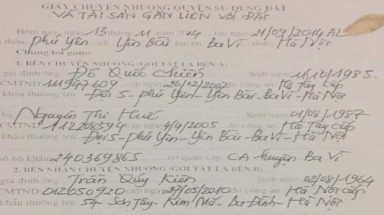 GIẤY CHUYỂN NHƯỢNG QUYỀN SỬ DỤNG ĐẤT
VÀ TÀI SẢN GẮN LIỀN VỚI ĐẤT
Hôm nay, ngày 13 tháng 11 năm 2014 21/09/2014 AL
Phú Yên Yên Bài Ba Vì Hà Nội
Chúng tôi gồm:
1. BÊN CHUYỂN NHƯỢNG (GỌI TẮT LÀ BÊN A):
gia đình ông Đỗ Quốc Chiến Sinh năm 11/10/1985.
CMTND: 111947609 26/02/2002 Hà Tây Cấp
khẩu thường trú Đội 5 - Phú Yên - Yên Bài - Ba Vì - Hà Nội
Nguyễn Thị Huế 01/08/1987
CMTND: 112208594 4/4/2005 Hà Tây Cấp
khẩu thường trú Đội 5 - Phú Yên - Yên Bài - Ba Vì - Hà Nội
số hộ khẩu 240369865 CA huyện Ba Vì
2. BÊN NHẬN CHUYỂN NHƯỢNG (GỌI TẮT LÀ BÊN B):
gia đình ông Trần Quý Kiên Sinh năm 02/08/1964
CMTND: 012050920 27/05/2010 Hà Nội Cấp
khẩu thường trú 54 Sơn Tây - Kim Mã - Ba Đình - Hà Nội